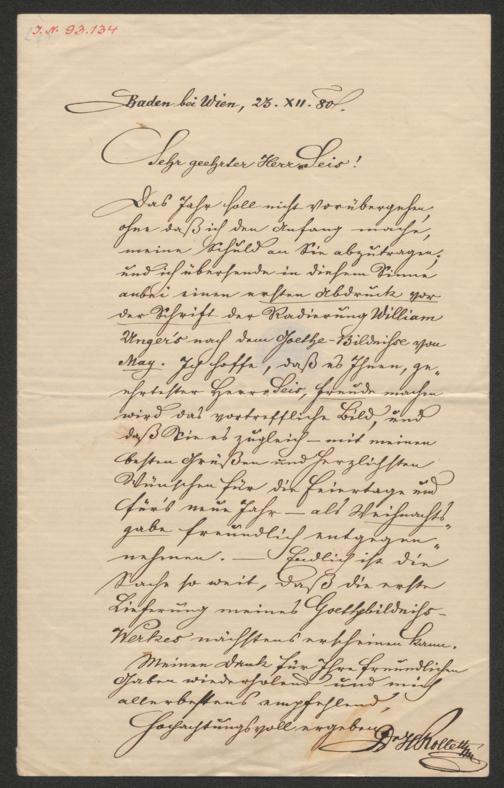 J. N. 93.134
Baden bei Wien, 23. XII. 80.
Sehr geehrter Herr Seis!
Das Jahr soll nicht vorübergehen,
ohne daß ich den Anfang mache,
meine Schuld an Sie abzutragen,
und ich übersende in diesem Sinne
anbei einen ersten Abdruck vor
der Schrift der Radierung William
Unger's nach dem Goethe-Bildniße von
May. Ich hoffe, daß es Ihnen, ge-
ehrtester Herr Seis, Freude machen
wird das vortreffliche Bild, und
daß Sie es zugleich – mit meinen
besten Grüßen und herzlichsten
Wünschen für die Feiertage und
für's neue Jahr – als Weihnachts-
gabe freundlich entgegen-
nehmen. – Endlich ist die
Sache so weit, daß die erste
Lieferung meines Goethebildniß-
Werkes nächstens erscheinen kann.
Meinen Dank für Ihre freundlichen
Gaben wiederholend und mich
allerbestens empfehlend,
Hochachtungsvoll ergeben
Dr H Rollett